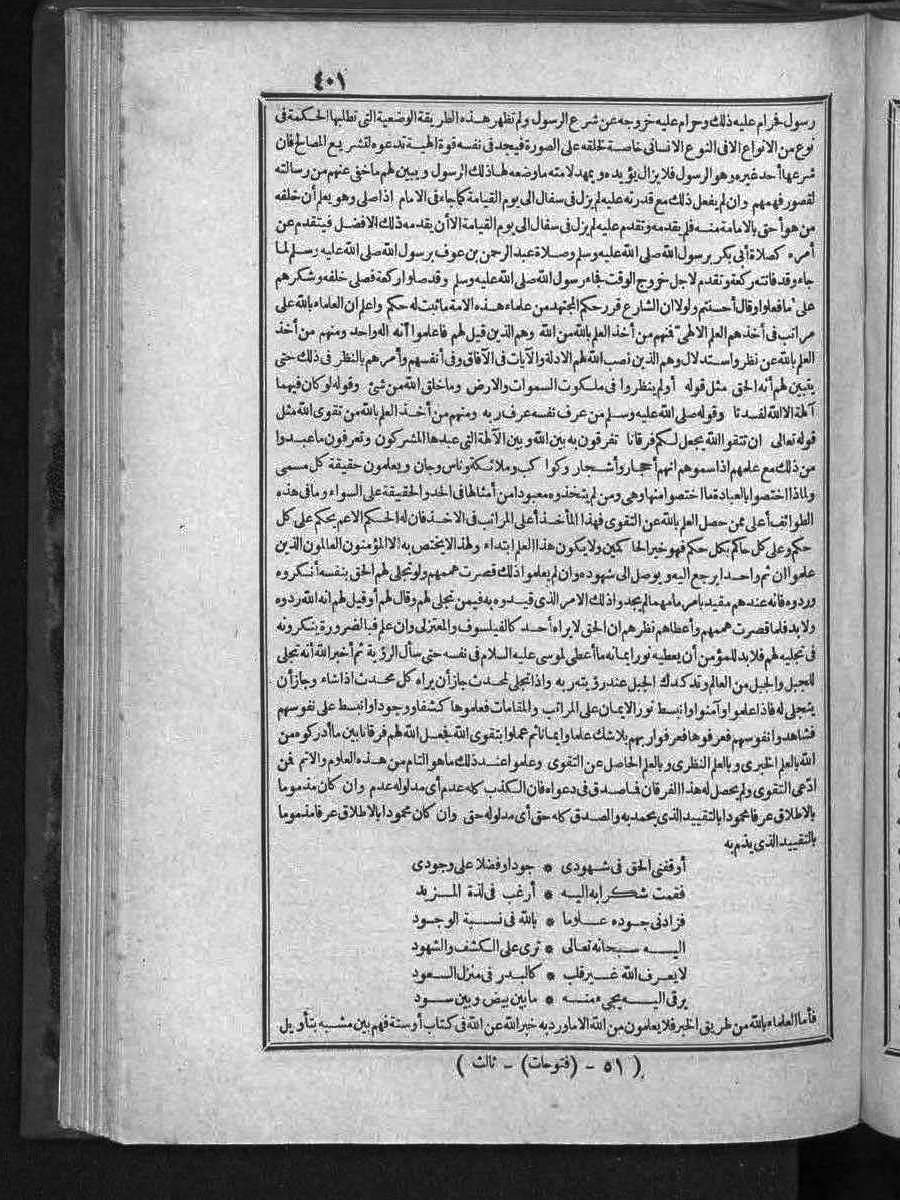 ٤٠١
رسول فحرام عليه ذلك وحرام عليه خروجه عن شرع الرسول ولم تظهر هذه الطريقة الوضعية التي تطلبها الحكمة في
نوع من الانواع الا في النوع الانساني خاصة لخلقه على الصورة فيجد في نفسه قوة الهية تدعوه لتشريع المصالح فان
شرعها أحد غيره وهو الرسول فلا يزال يؤيده ويمهد لامته ما وضعه لها ذلك الرسول ويبين لهم ما خفي عنهم من رسالته
لقصور فهمهم وان لم يفعل ذلك مع قدرته عليه لم يزل في سفال الى يوم القيامة كما جاء في الامام اذا صلى وهو يعلم أن خلفه
من هو أحق بالامامة منه فلم يقدمه وتقدم عليه لم يزل في سفال الى يوم القيامة الا أن يقدمه ذلك الافضل فيتقدم عن
أمره كصلاة أبي بكر برسول الله صلى الله عليه وسلم وصلاة عبد الرحمن بن عوف برسول الله صلى الله عليه وسلم لما
جاء وقد فاتته ركعة وتقدم لاجل خروج الوقت فجاء رسول الله صلى الله عليه وسلم وقد صلوا ركعة فصلى خلفه وشكرهم
على ما فعلوا وقال أحسنتم ولولا ان الشارع قرر حكم المجتهد من علماء هذه الامة ما ثبت له حكم واعلم ان العلماء بالله على
مراتب في أخذهم العلم الالهيّ فمنهم من أخذ العلم بالله من الله وهم الذين قيل لهم فاعلموا أنه اله واحد ومنهم من أخذ
العلم بالله عن نظر واستدلال وهم الذين نصب الله لهم الادلة والآيات في الآفاق وفي أنفسهم وأمرهم بالنظر في ذلك حتى
يتبين لهم أنه الحق مثل قوله أولم ينظروا في ملكوت السموات والارض وما خلق الله من شئ وقوله لو كان فيهما
آلهة الا الله لفسدتا وقوله صلى الله عليه وسلم من عرف نفسه عرف ربه ومنهم من أخذ العلم بالله من تقوى الله مثل
قوله تعالى ان تتقوا الله يجعل لكم فرقانا تفرقون به بين الله وبين الآلهة التي عبدها المشركون وتعرفون ما عبدوا
من ذلك مع علمهم اذا سموهم انهم أحجار وأشجار وكواكب وملائكة وناس وجان ويعلمون حقيقة كل مسمى
ولماذا اختصوا بالعبادة ما اختصوا منها وهي ومن لم يتخذوه معبودا من أمثالها في الحد والحقيقة على السواء وما في هذه
الطوائف أعلى ممن حصل العلم بالله عن التقوى فهذا المأخذ أعلى المراتب في الاخذ فان له الحكم الاعم يحكم على كل
حكم وعلى كل حاكم بكل حكم فهو خير الحاكمين ولا يكون هذا العلم ابتداء ولهذا لا يختص به الا المؤمنون العالمون الذين
علموا ان ثم واحدا يرجع اليه ويوصل الى شهوده وان لم يعلموا ذلك قصرت هممهم ولو تجلى لهم الحق بنفسه أنكروه
وردوه فانه عندهم مقيد بأمر ما مهما لم يجدوا ذلك الامر الذي قيدوه به فيمن تجلى لهم وقال لهم أو قيل لهم انه الله ردوه
ولا بد فلما قصرت هممهم وأعطاهم نظرهم ان الحق لا يراه أحد كالفيلسوف والمعتزلي وان علم فبالضرورة ينكرونه
في تجليه لهم فلا بد للمؤمن أن يعطيه نور ايمانه ما أعطى لموسى عليه السلام في نفسه حتى سأل الرؤية ثم أخبر الله أنه تجلى
للجبل والجبل من العالم وتدكدك الجبل عند رؤيته ربه واذا تجلى لمحدث جاز أن يراه كل محدث اذا شاء وجاز أن
يتجلى له فاذا علموا وآمنوا وانبسط نور الايمان على المراتب والمقامات فعلموها كشفا ووجودا وانبسط على نفوسهم
فشاهدوا نفوسهم فعرفوها فعرفوا ربهم بلا شك علما وايمانا ثم عملوا بتقوى الله فجعل الله لهم فرقانا بين ما أدركوه من
الله بالعلم الخبري وبالعلم النظري وبالعلم الحاصل عن التقوى وعلموا عند ذلك ما هو التام من هذه العلوم والاتم فمن
ادّعى التقوى ولم يحصل له هذا الفرقان فما صدق في دعواه فان الكذب كله عدم أي مدلوله عدم وان كان مذموما
بالاطلاق عرفا محمودا بالتقييد الذي يحمد به والصدق كله حق أي مدلوله حق وان كان محمودا بالاطلاق عرفا مذموما
بالتقييد الذي يذم به
أوقفني الحق في شهودي * جودا وفضلا على وجودي
فقمت شكرا به اليه * أرغب في لذة المزيد
فزادني جوده علوما * بالله في نسبة الوجود
اليه سبحانه تعالى * ترى على الكشف والشهود
لا يعرف الله غير قلب * كالبدر في منزل السعود
يرقى اليه يجيء منه * ما بين بيض وبين سود
فأما العلماء بالله من طريق الخبر فلا يعلمون من الله الا ما ورد به خبر الله عن الله في كتاب أو سنة فهم بين مشبه بتأويل
( ٥١ - (فتوحات) - ثالث )